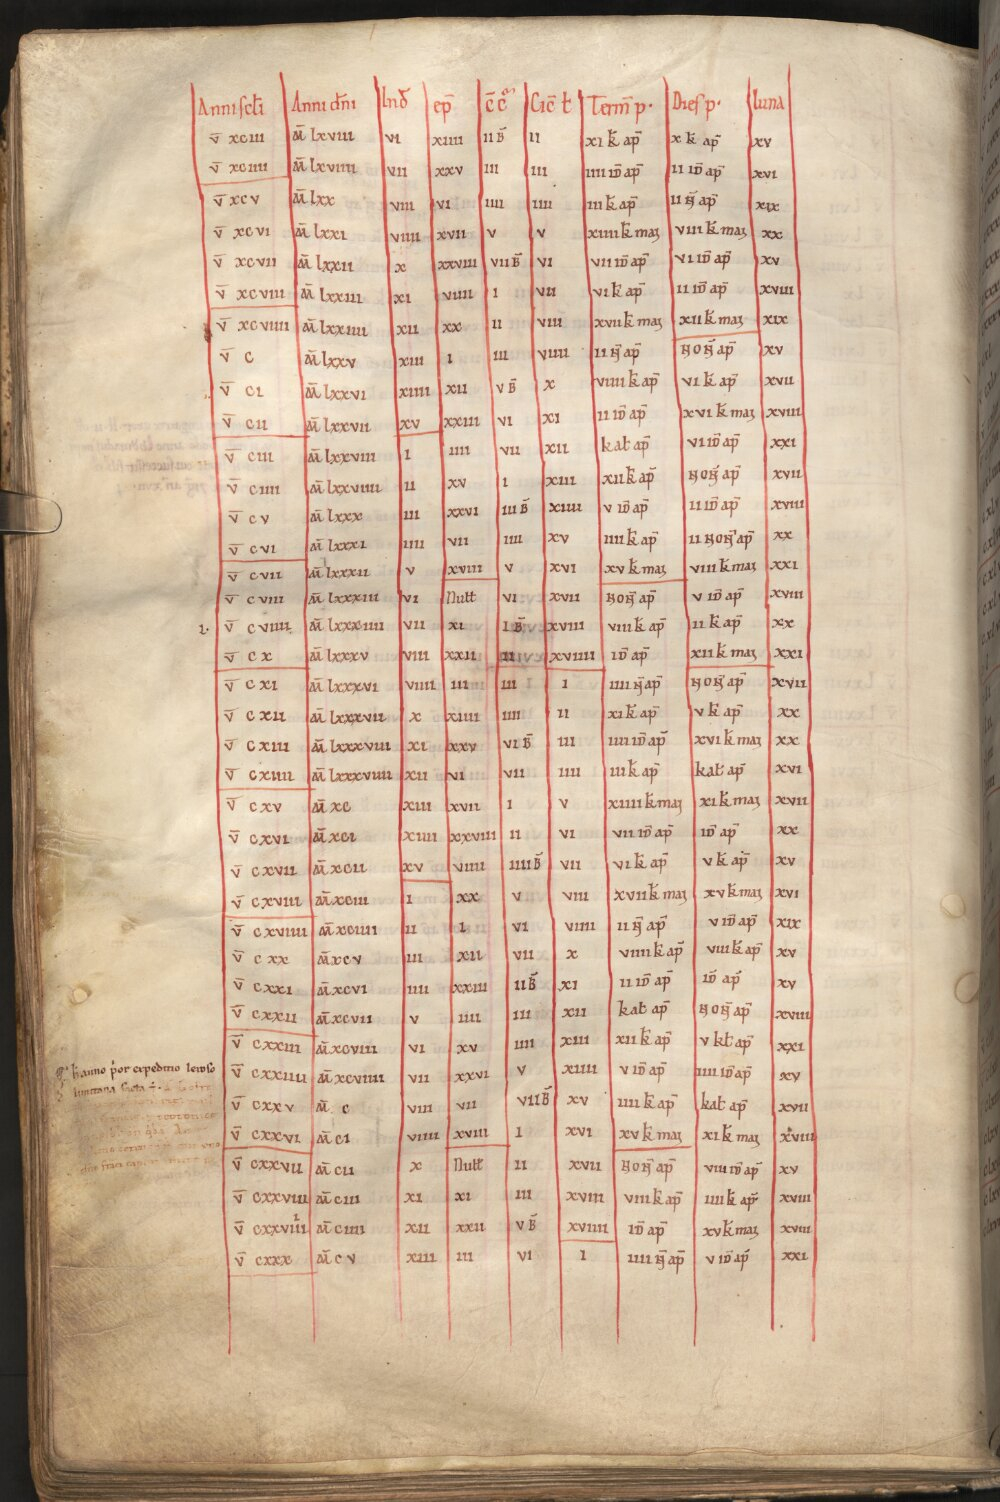 Anni scti Anni dni Ind ep cc Cic t Term p. Dies p. luna
v xciii m lxviii vi xiiii ii b ii xi k ap x k ap xv
v xciiii m lxviiii vii xxv iii iii iiii id ap ii id ap xvi
v xcv m lxx viii vi iiii iiii iii k ap ii n ap xix
v xcvi m lxxi viiii xvii v v xiiii k mai viii k mai xx
v xcvii m lxxii x xxviii vii b vi vii id ap vi id ap xv
v xcviii m lxxiii xi viiii i vii vi k ap ii id ap xviii
v xcviiii m lxxiiii xii xx ii viii xvii k mai xii k mai xix
v c m lxxv xiii i iii viiii ii n ap non ap xv
v ci m lxxvi xiiii xii v b x viiii k ap vi k ap xvii
v cii m lxxvii xv xxiii vi xi ii id ap xvi k mai xviii
v ciii m lxxviii i iiii vii xii kal ap vi id ap xxi
v ciiii m lxxviiii ii xv i xiii xii k ap non ap xvii
v cv m lxxx iii xxvi iii b xiiii v id ap ii id ap xviii
v cvi m lxxxi iiii vii iiii xv iiii k ap ii non ap xx
v cvii m lxxxii v xviii v xvi xv k mai viii k mai xxi
v cviii m lxxxiii vi Null vi xvii non ap v id ap xviii
v cviiii m lxxxiiii vii xi i b xviii viii k ap ii k ap xx
v cx m lxxxv viii xxii ii xviiii id ap xii k mai xxi
v cxi m lxxxvi viiii iii iii i iiii n ap non ap xvii
v cxii m lxxxvii x xiiii iiii ii xi k ap v k ap xx
v cxiii m lxxxviii xi xxv vi b iii iiii id ap xvi k mai xx
v cxiiii m lxxxviiii xii vi vii iiii iii k ap kal ap xvi
v cxv m xc xiii xvii i v xiiii k mai xi k mai xvii
v cxvi m xci xiiii xxviii ii vi vii id ap id ap xx
v cxvii m xcii xv viiii iiii b vii vi k ap v k ap xv
v cxviii m xciii i xx v viii xvii k mai xv k mai xvi
v cxviiii m xciiii ii i vi viiii ii n ap v id ap xix
v cxx m xcv iii xii vii x viiii k ap viii k ap xv
v cxxi m xcvi iiii xxiii ii b xi ii id ap id ap xv
v cxxii m xcvii v iiii iii xii kal ap non ap xviii
v cxxiii m xcviii vi xv iiii xiii xii k ap v kl ap xxi
v cxxiiii m xcviiii vii xxvi v xiiii v id ap iiii id ap xv
v cxxv m c viii vii vii b xv iiii k ap kal ap xvii
v cxxvi m ci viiii xviii i xvi xv k mai xi k mai xviii
v cxxvii m cii x Null ii xvii non ap viii id ap xv
v cxxviii m ciii xi xi iii xviii viii k ap iiii k ap xviii
v cxxviiii m ciiii xii xxii v b xviiii id ap xv k mai xviii
v cxxx m cv xiii iii vi i iiii n ap v id ap xxi
h anno expeditio
facta